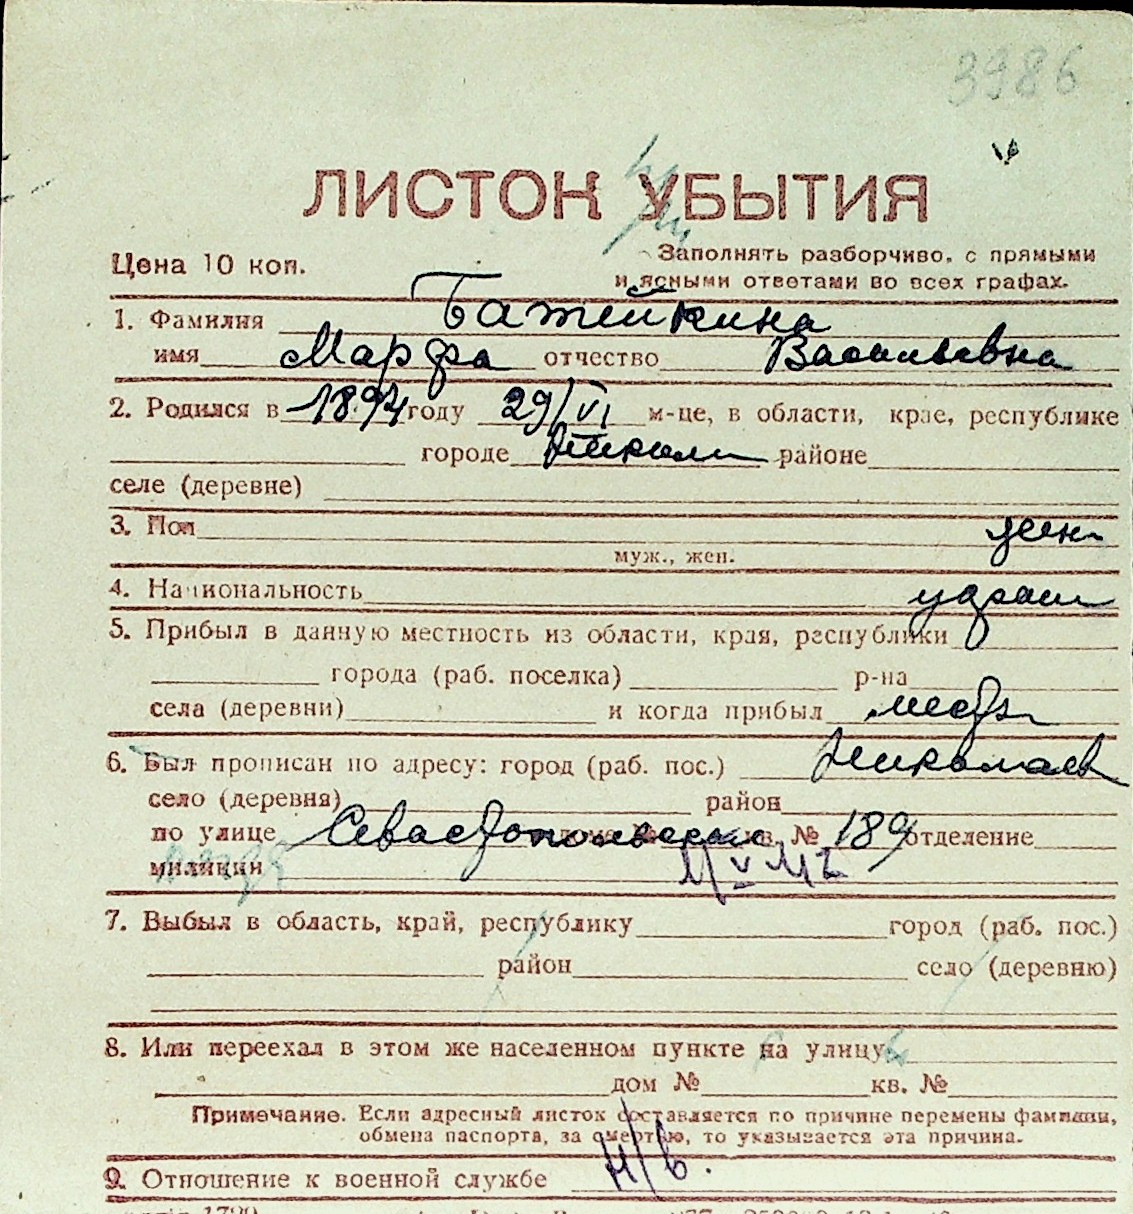 3986
ЛИСТОК УБЫТИЯ
Цена 10 коп.
Заполнять разборчиво, с прямыми
и ясными ответами во всех графах.
1. Фамилия Батейкина
имя Марфа отчество Васильевна
2. Родился в 1894 году 29/VI м-це, в области, крае, республике
городе Никол районе
селе (деревне)
3. Пол жен
муж., жен.
4. Национальность украин
5. Прибыл в данную местность из области, края, республики
города (раб. поселка) р-на
села (деревни) и когда прибыл местн
6. Был прописан по адресу: город (раб. пос.) Николаев
село (деревня) район
по улице Севастопольская кв. № 189 отделение
милиции
7. Выбыл в область, край, республику город (раб. пос.)
район село (деревню)
8. Или переехал в этом же населенном пункте на улицу
дом № кв. №
Примечание. Если адресный листок составляется по причине перемены фамилии,
обмена паспорта, за смертью, то указывается эта причина.
9. Отношение к военной службе н/в.